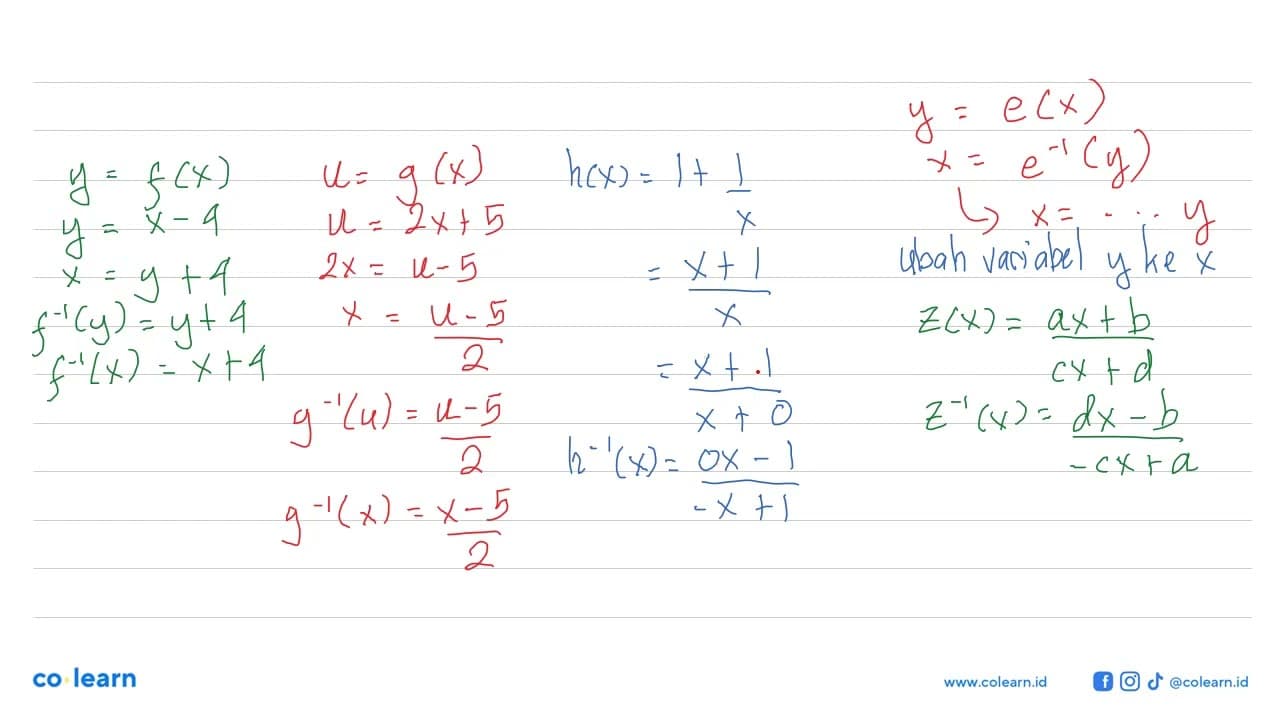 y = f(x)
y = x - 4
x = y + 4
f⁻¹(y) = y + 4
f⁻¹(x) = x + 4
u = g(x)
u = 2x + 5
2x = u - 5
x = (u - 5)/2
g⁻¹(u) = (u - 5)/2
g⁻¹(x) = (x - 5)/2
h(x) = 1 + 1/x
= (x + 1)/x
= (x + 1)/(x + 0)
h⁻¹(x) = (0x - 1)/(-x + 1)
y = e(x)
x = e⁻¹(y)
↳ x = ... y
Ubah variabel y ke x
z(x) = (ax + b)/(cx + d)
z⁻¹(x) = (dx - b)/(-cx + a)
co learn
www.colearn.id
@colearn.id